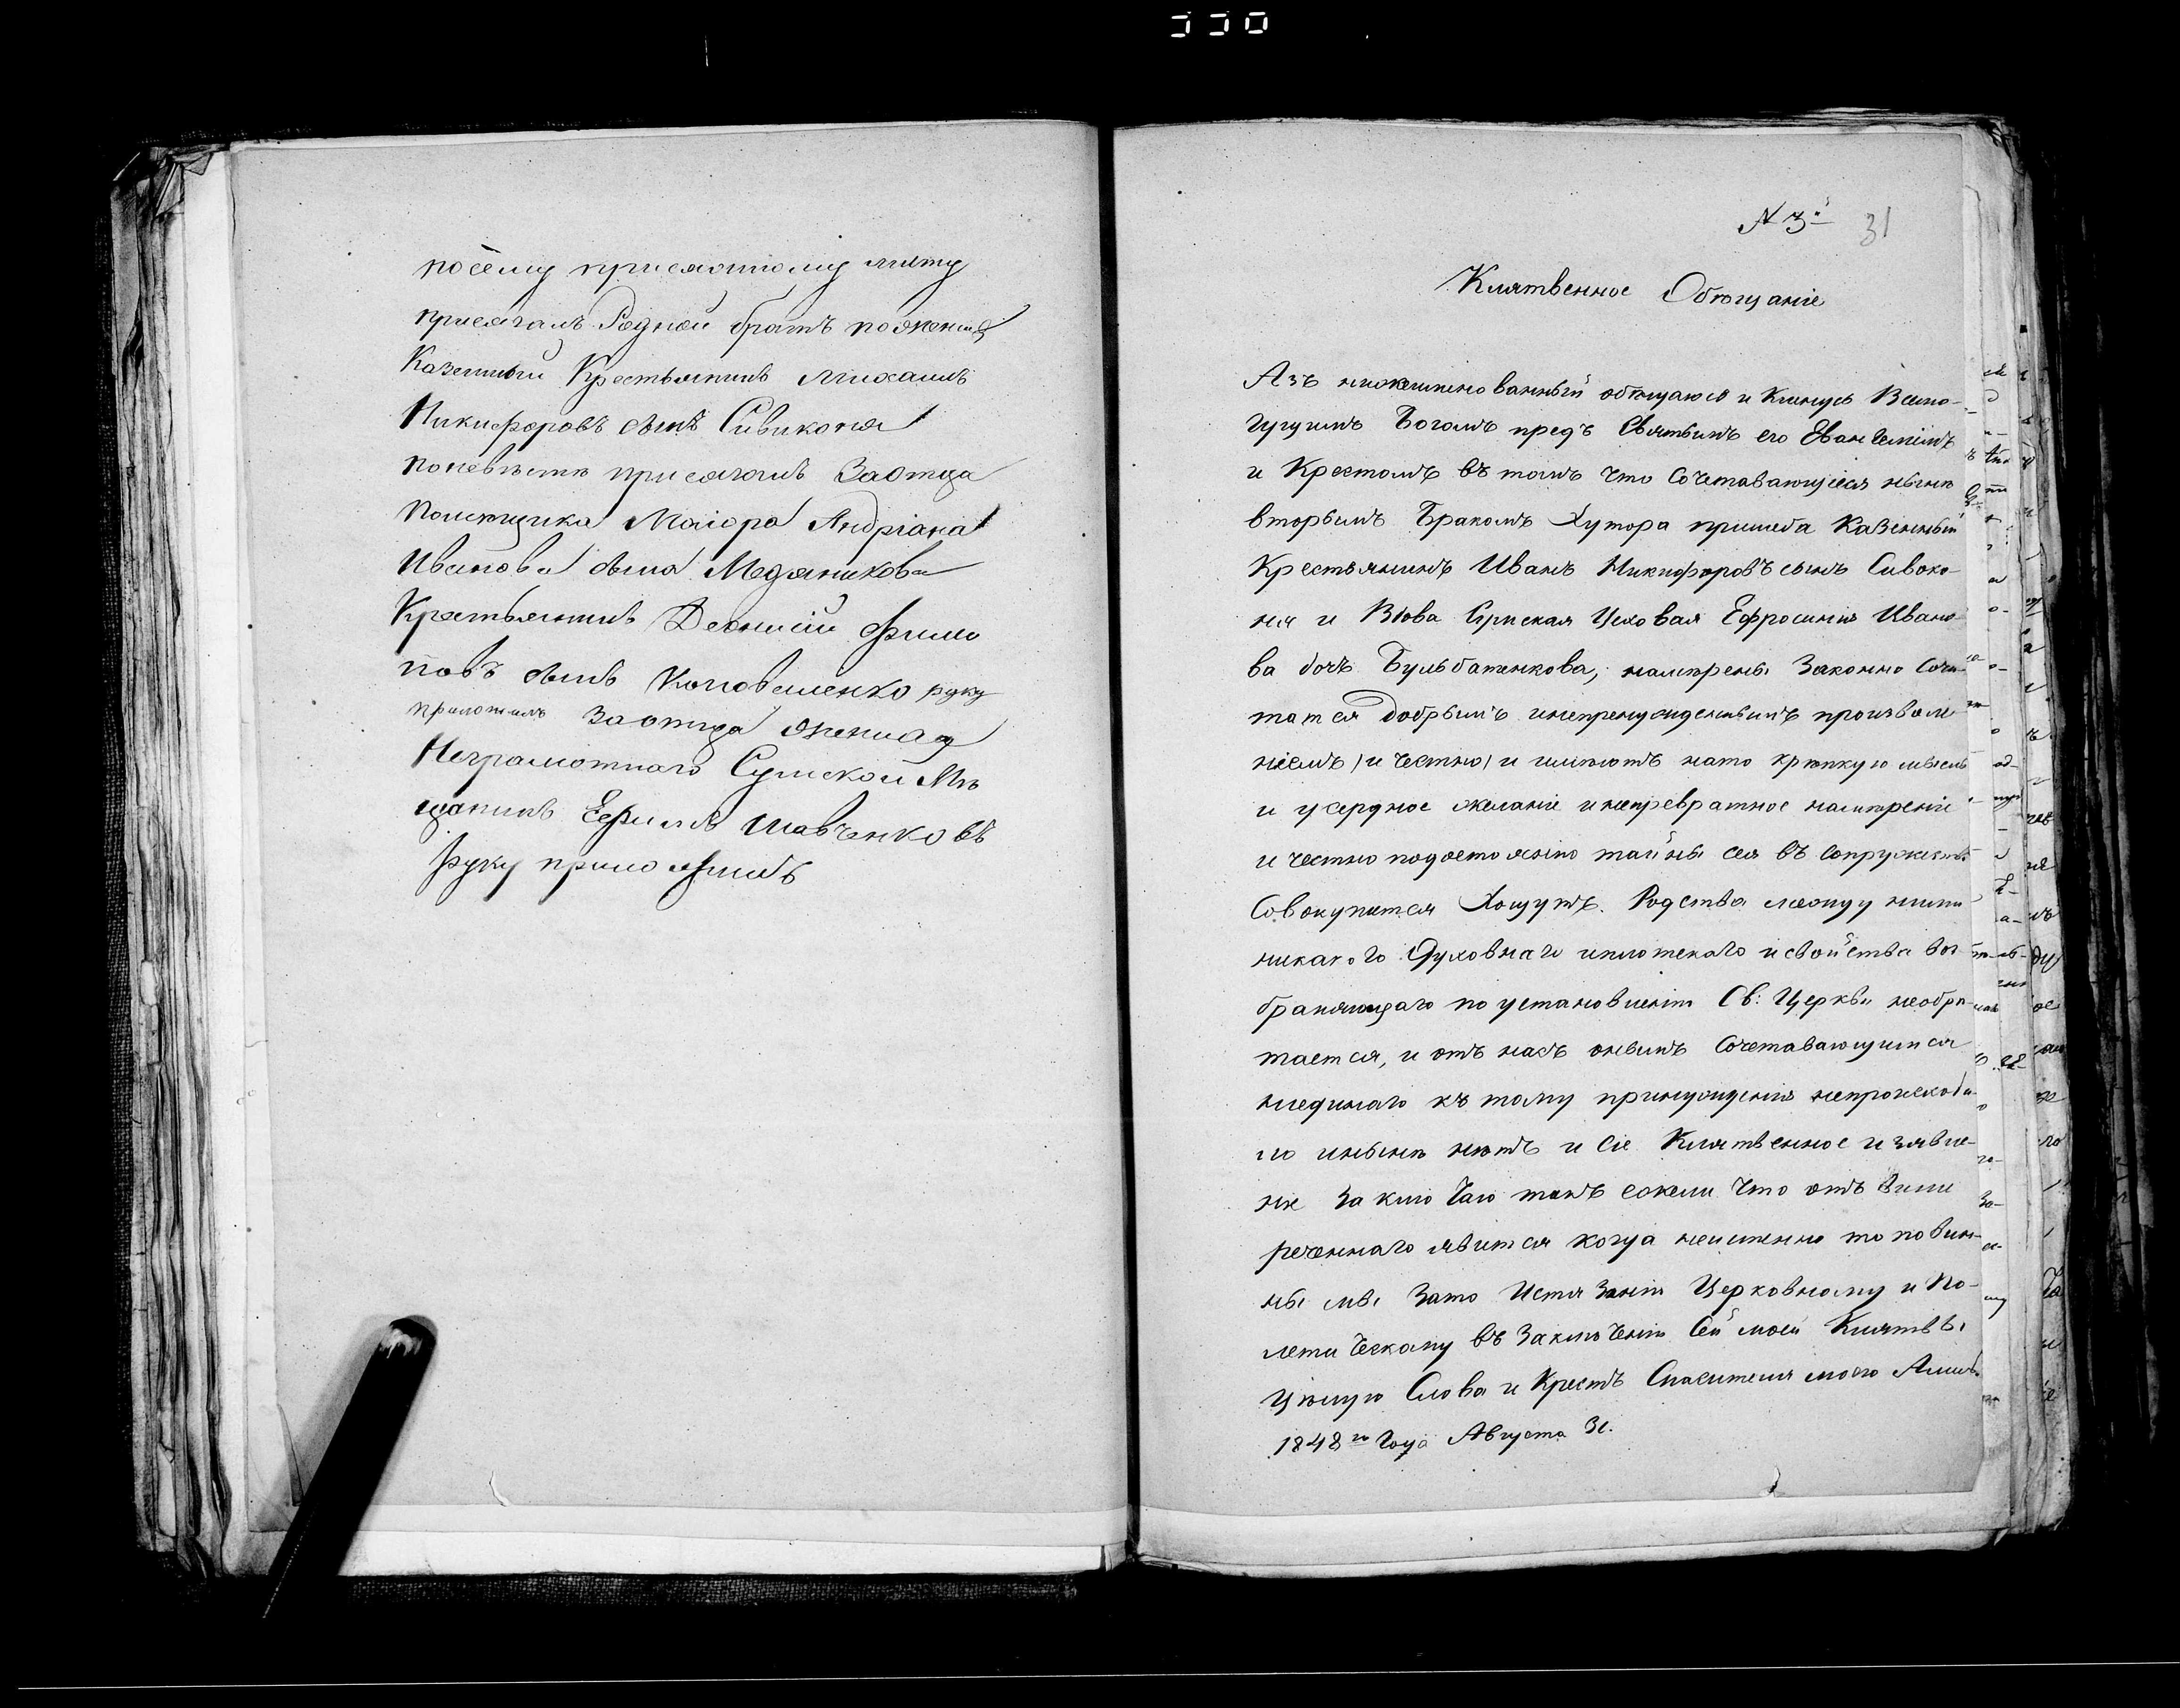 посему присяжному листу
присягалъ Родной братъ пожениху
Казенный Крестьянинъ Михаилъ
Никифоровъ сынъ Сивиконя
поневѣсте присягалъ Заотца
Помещика Маіора Андріана
Иванова сына Медяникова
Крестьянинъ Деонисій Фили
повъ сынъ руку
приложилъ Заотца жениха
Неграмотнаго Сумской Мѣ
щанинъ Ефимъ Шавченковъ
руку приложилъ
N 3й 31
Клятвенное Обѣщаніе
Азъ нижеимянованный обѣщаюся и Кленусь Всемо-
гущимъ Богомъ предъ Святымъ его Евангеліемъ
и Крестомъ въ томъ что Сочетавающіеся нынѣ
вторымъ Бракомъ Хутора пришиба Казенный
Крестьянинъ Иванъ Никифоровъ сынъ Сивоко-
ня и Вдова Сумская Цеховая Ефросинія Ивано-
ва дочь Бульбатенкова, намѣрены Законно Соче-
татся добрымъ инепренужденнымъ произволе
ніемъ и честно и имѣютъ нато крѣпкую мысль
и усердное желаніе инепревратное намѣреніе
и честно подостоянію тайны сея въ Сопружество
Совокупится Хощутъ. Родства между ними
никакого Духовнаго иплотскаго исвойства воз-
браняющаго поустановленію Св: Церкви необрѣ-
тается, и отъ насъ онымъ Сочетавающимся
ниединаго къ тому принужденія непроисходи-
ло инынѣ нѣтъ и Сіе Клятвенное изявле-
ніе Заключаю такъ ежели что отъ выше
реченнаго явится когда неистинно то повин-
ны мы Зато Истязанію Церковному и По-
летическому въ Заключеніе Сей моей Клятвы
Цѣлую Слова и Крестъ Спасителя моего Аминь.
1848го Года Августа 31.